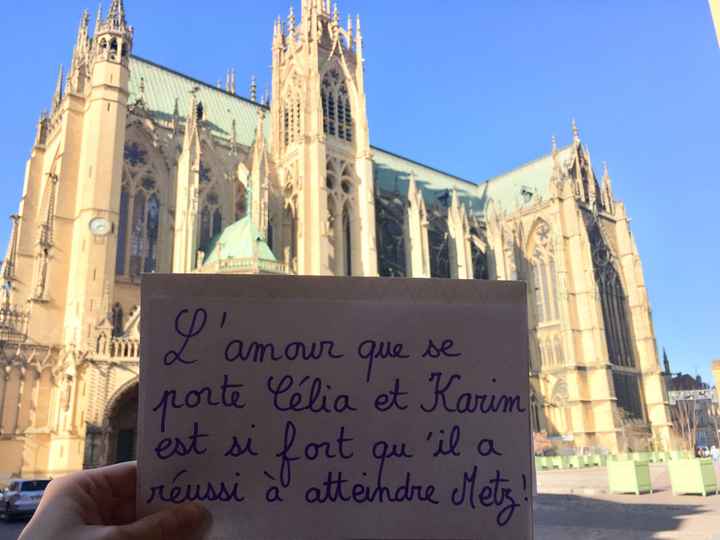 L'amour que se
porte Célia et Karim
est si fort qu'il a
réussi à atteindre Metz!